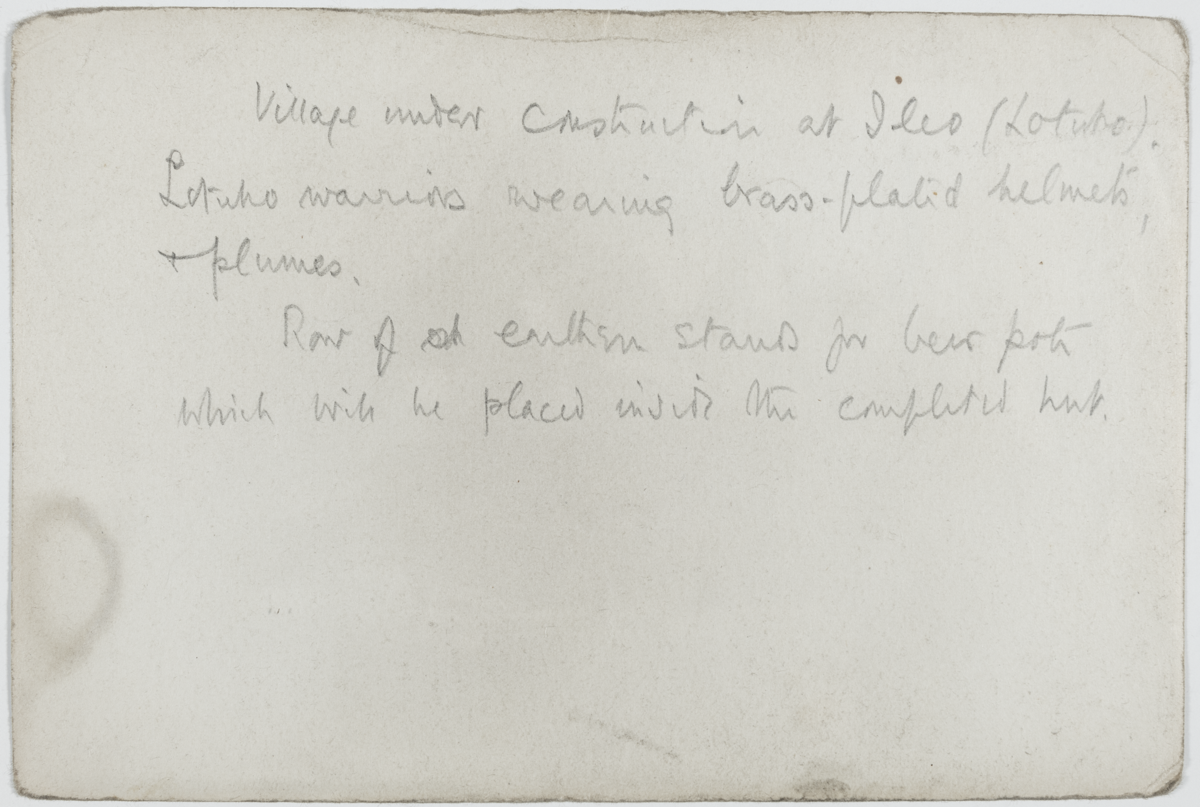 Village under construction at Ileo (Lotuho).
Lotuho warriors wearing brass-plated helmets,
+ plumes.
Row of earthen stands for beer pots
which will be placed inside the completed hut.